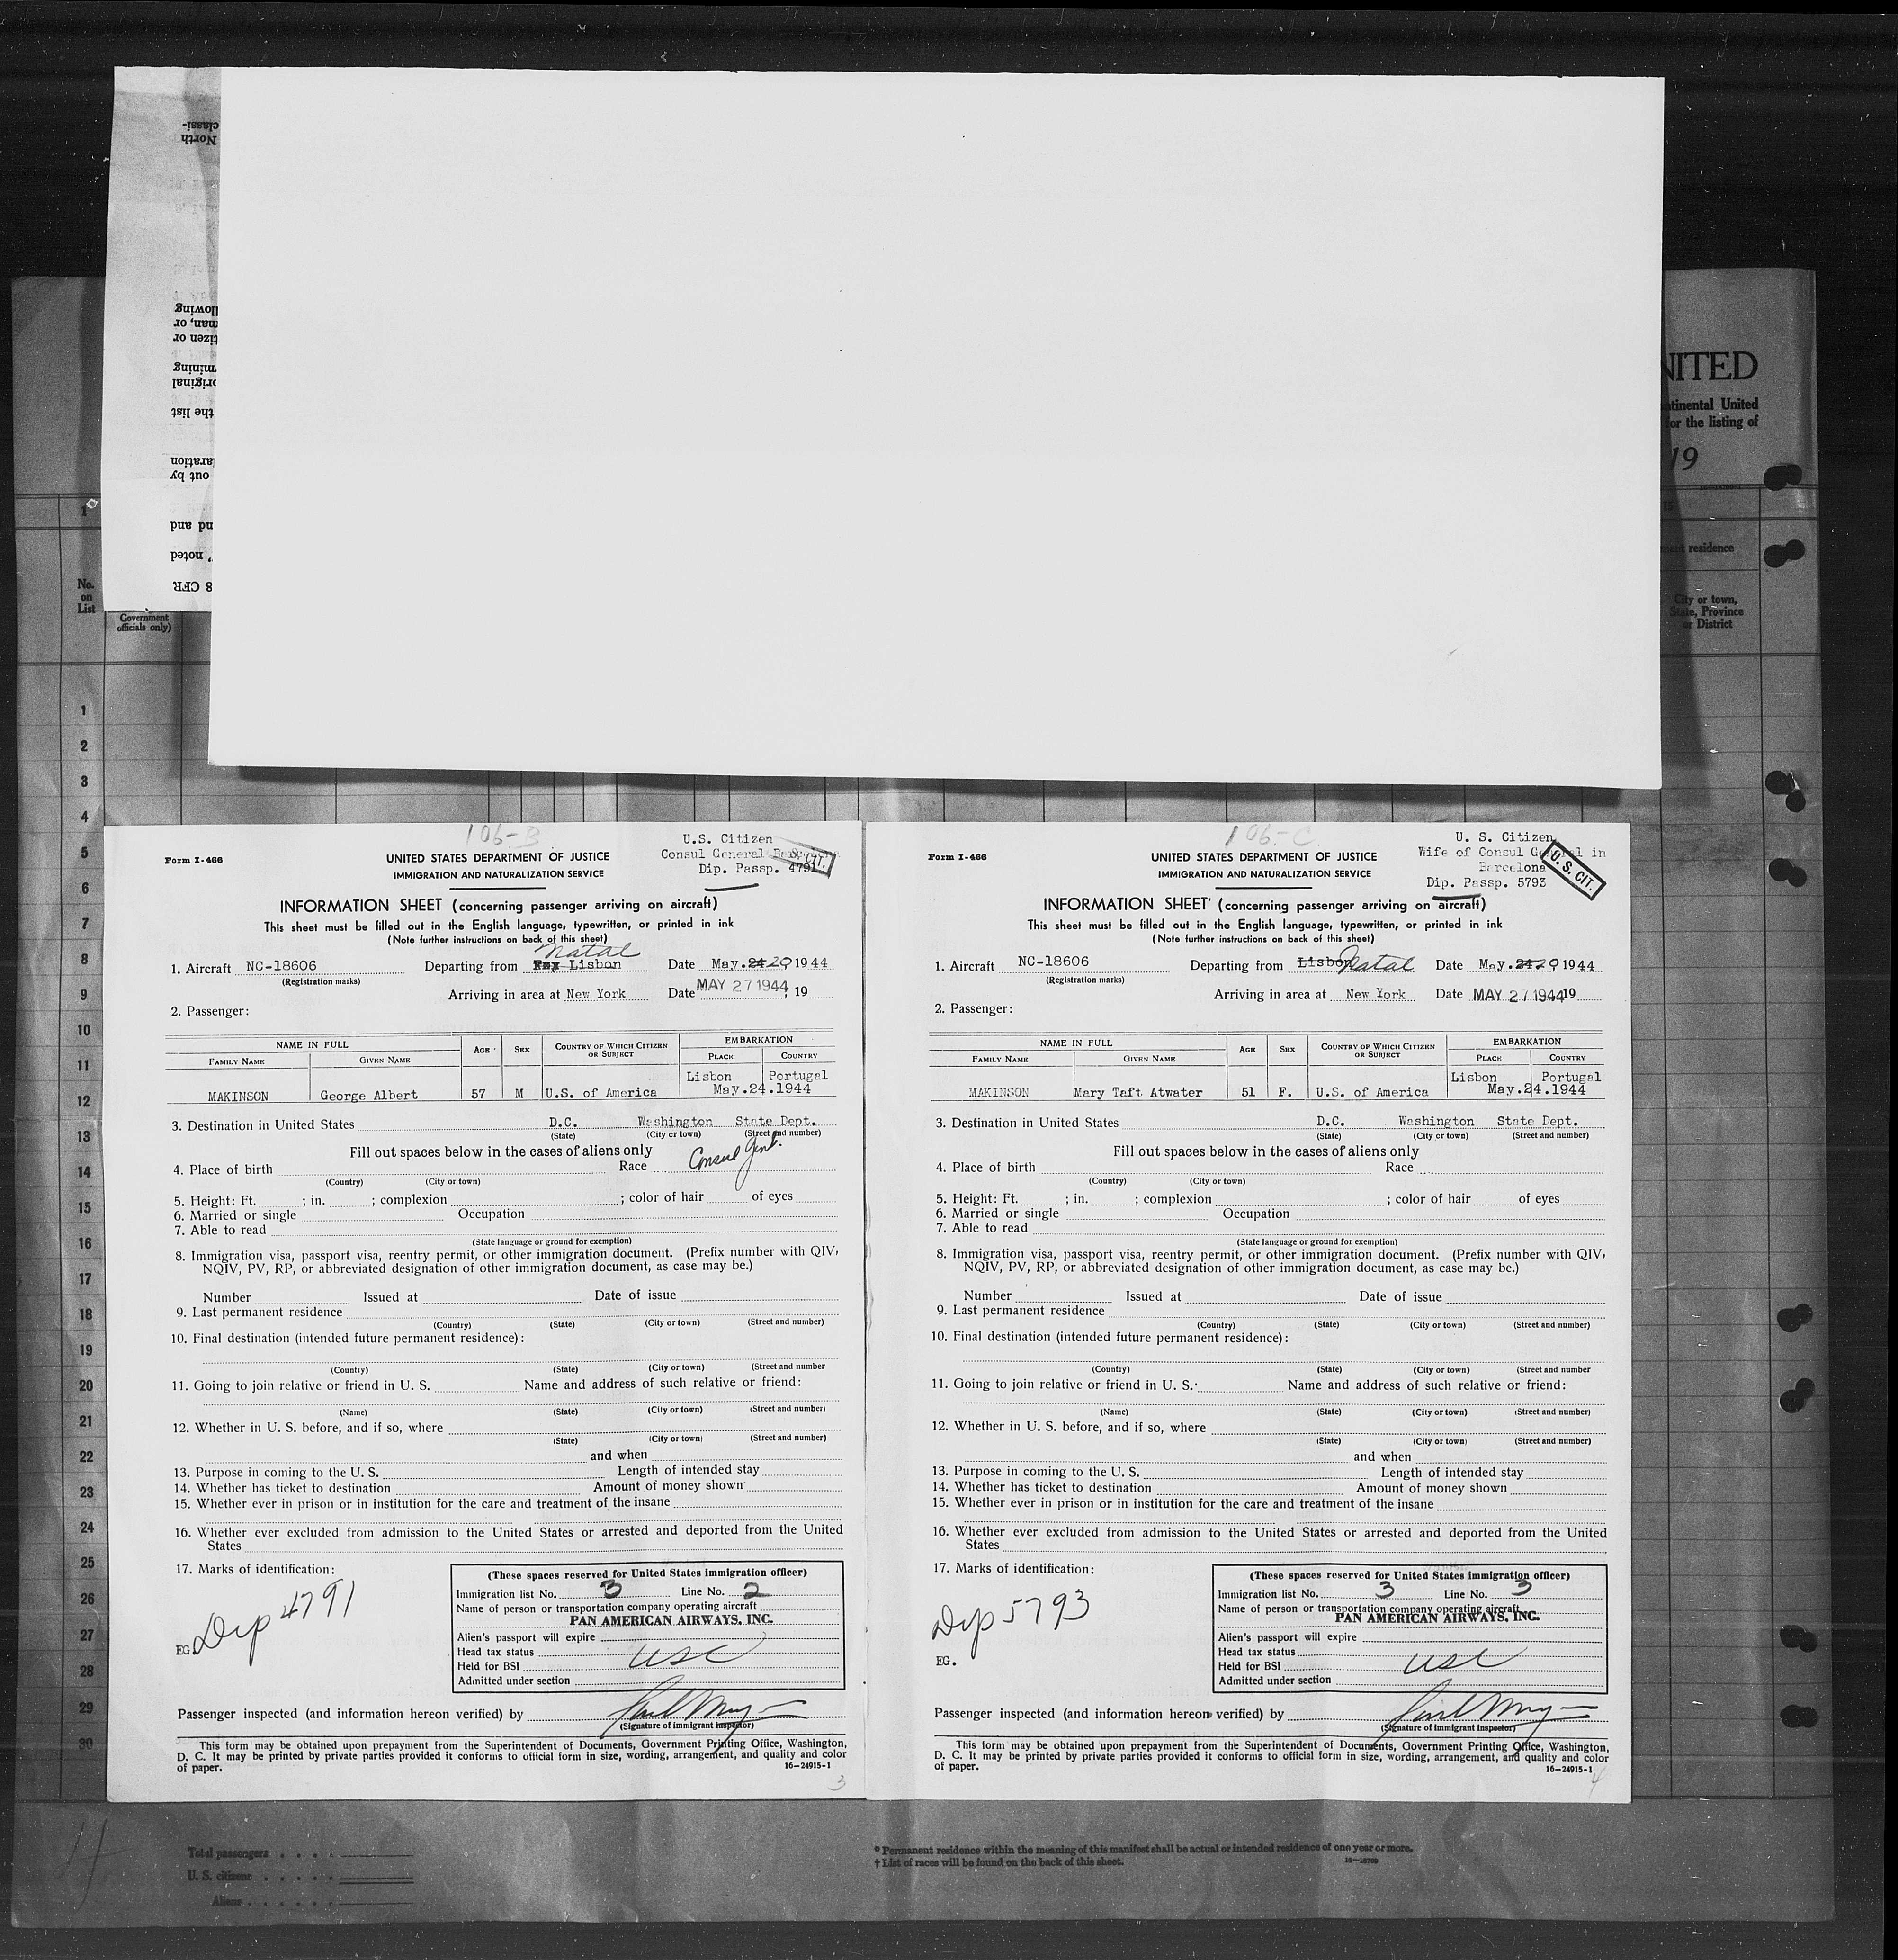 classi-
North
llowing
man, or
tizen or
rmining
original
the list
laration
out by
nd and
noted
8 CFR
NITED
ntinental United
or the listing of
19
1
residence
No.
on
List
City or town,
State, Province
or District
Government
officials only)
1
2
3
4
5
6
7
8
9
10
11
12
13
14
15
16
17
18
19
20
21
22
23
24
25
26
27
28
29
30
106-B
U.S. Citizen
Form I-466
UNITED STATES DEPARTMENT OF JUSTICE
Consul General
IMMIGRATION AND NATURALIZATION SERVICE
Dip. Passp. 4791
CIT.
INFORMATION SHEET (concerning passenger arriving on aircraft)
This sheet must be filled out in the English language, typewritten, or printed in ink
(Note further instructions on back of this sheet)
Natal
1. Aircraft NC-18606 Departing from Lisbon Date May. 24 20 1944
(Registration marks)
Arriving in area at New York Date MAY 27 1944, 19
2. Passenger:
NAME IN FULL
FAMILY NAME GIVEN NAME AGE SEX COUNTRY OF WHICH CITIZEN OR SUBJECT EMBARKATION
PLACE COUNTRY
Lisbon Portugal
MAKINSON George Albert 57 M U.S. of America May.24.1944
3. Destination in United States D.C. Washington State Dept.
(State) (City or town) (Street and number)
Fill out spaces below in the cases of aliens only
Consul Genl.
4. Place of birth Race
(Country) (City or town)
5. Height: Ft. ; in. ; complexion ; color of hair of eyes
6. Married or single Occupation
7. Able to read
(State language or ground for exemption)
8. Immigration visa, passport visa, reentry permit, or other immigration document. (Prefix number with QIV,
NQIV, PV, RP, or abbreviated designation of other immigration document, as case may be.)
Number Issued at Date of issue
9. Last permanent residence
(Country) (State) (City or town) (Street and number)
10. Final destination (intended future permanent residence):
(Country) (State) (City or town) (Street and number
11. Going to join relative or friend in U. S. Name and address of such relative or friend:
(Name) (State) (City or town) (Street and number)
12. Whether in U. S. before, and if so, where
(State) (City or town) (Street and number)
and when
13. Purpose in coming to the U. S. Length of intended stay
14. Whether has ticket to destination Amount of money shown
15. Whether ever in prison or in institution for the care and treatment of the insane
16. Whether ever excluded from admission to the United States or arrested and deported from the United
States
17. Marks of identification:
Dip 4791
EG
(These spaces reserved for United States immigration officer)
Immigration list No. 3 Line No. 2
Name of person or transportation company operating aircraft
PAN AMERICAN AIRWAYS, INC.
Alien's passport will expire
Head tax status
USC
Held for BSI
Admitted under section
Passenger inspected (and information hereon verified) by
(Signature of immigrant inspector)
This form may be obtained upon prepayment from the Superintendent of Documents, Government Printing Office, Washington,
D. C. It may be printed by private parties provided it conforms to official form in size, wording, arrangement, and quality and color
of paper.
16—24915-1
3
106-C
U. S. Citizen
Form I-466
UNITED STATES DEPARTMENT OF JUSTICE
Wife of Consul General in
IMMIGRATION AND NATURALIZATION SERVICE
Barcelona
Dip. Passp. 5793
U. S. CIT.
INFORMATION SHEET (concerning passenger arriving on aircraft)
This sheet must be filled out in the English language, typewritten, or printed in ink
(Note further instructions on back of this sheet)
1. Aircraft NC-18606 Departing from Lisbon Natal Date May. 24 20 1944
(Registration marks)
Arriving in area at New York Date MAY 27 1944 19
2. Passenger:
NAME IN FULL
FAMILY NAME GIVEN NAME AGE SEX COUNTRY OF WHICH CITIZEN OR SUBJECT EMBARKATION
PLACE COUNTRY
Lisbon Portugal
MAKINSON Mary Taft Atwater 51 F. U.S. of America May.24.1944
3. Destination in United States D.C. Washington State Dept.
(State) (City or town) (Street and number)
Fill out spaces below in the cases of aliens only
4. Place of birth Race
(Country) (City or town)
5. Height: Ft. ; in. ; complexion ; color of hair of eyes
6. Married or single Occupation
7. Able to read
(State language or ground for exemption)
8. Immigration visa, passport visa, reentry permit, or other immigration document. (Prefix number with QIV,
NQIV, PV, RP, or abbreviated designation of other immigration document, as case may be.)
Number Issued at Date of issue
9. Last permanent residence
(Country) (State) (City or town) (Street and number)
10. Final destination (intended future permanent residence):
(Country) (State) (City or town) (Street and number
11. Going to join relative or friend in U. S. Name and address of such relative or friend:
(Name) (State) (City or town) (Street and number)
12. Whether in U. S. before, and if so, where
(State) (City or town) (Street and number)
and when
13. Purpose in coming to the U. S. Length of intended stay
14. Whether has ticket to destination Amount of money shown
15. Whether ever in prison or in institution for the care and treatment of the insane
16. Whether ever excluded from admission to the United States or arrested and deported from the United
States
17. Marks of identification:
Dip 5793
EG.
(These spaces reserved for United States immigration officer)
Immigration list No. 3 Line No. 3
Name of person or transportation company operating aircraft
PAN AMERICAN AIRWAYS, INC.
Alien's passport will expire
Head tax status
USC
Held for BSI
Admitted under section
Passenger inspected (and information hereon verified) by
(Signature of immigrant inspector)
This form may be obtained upon prepayment from the Superintendent of Documents, Government Printing Office, Washington,
D. C. It may be printed by private parties provided it conforms to official form in size, wording, arrangement, and quality and color
of paper.
16—24915-1
4
Total passengers
U. S. citizens
Aliens
* Permanent residence within the meaning of this manifest shall be actual or intended residence of one year or more.
† List of races will be found on the back of this sheet.